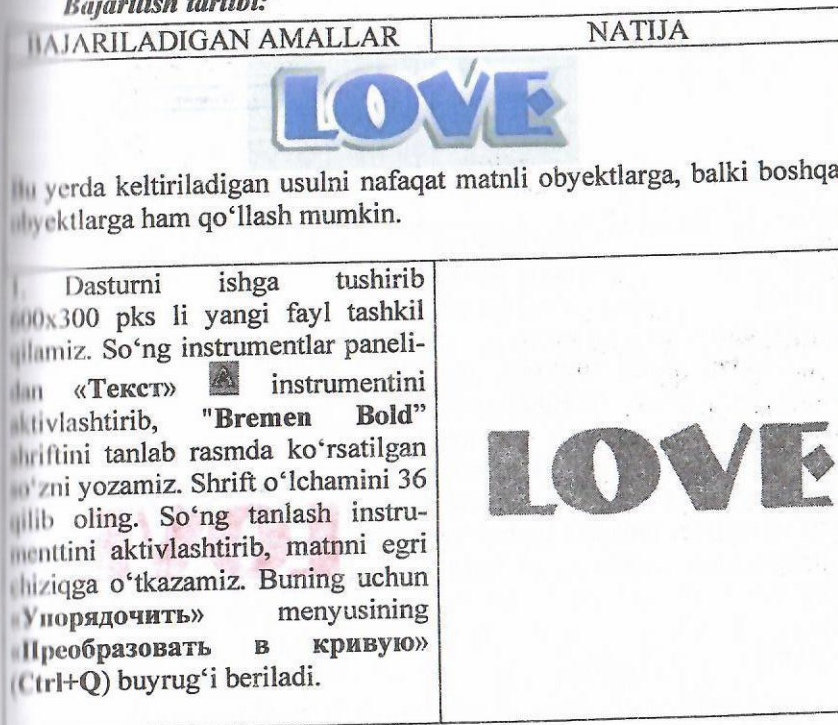 Bajarilish tartibi:
BAJARILADIGAN AMALLAR NATIJA
LOVE
Bu yerda keltiriladigan usulni nafaqat matnli obyektlarga, balki boshqa
obyektlarga ham qo‘llash mumkin.
1. Dasturni ishga tushirib
600x300 pks li yangi fayl tashkil
qilamiz. So‘ng instrumentlar paneli-
dan «Текст» A instrumentini
aktivlashtirib, "Bremen Bold”
shriftini tanlab rasmda ko‘rsatilgan
so‘zni yozamiz. Shrift o‘lchamini 36
qilib oling. So‘ng tanlash instru-
menttini aktivlashtirib, matnni egri
chiziqga o‘tkazamiz. Buning uchun
«Упорядочить» menyusining
«Преобразовать в кривую»
(Ctrl+Q) buyrug‘i beriladi.
LOVE